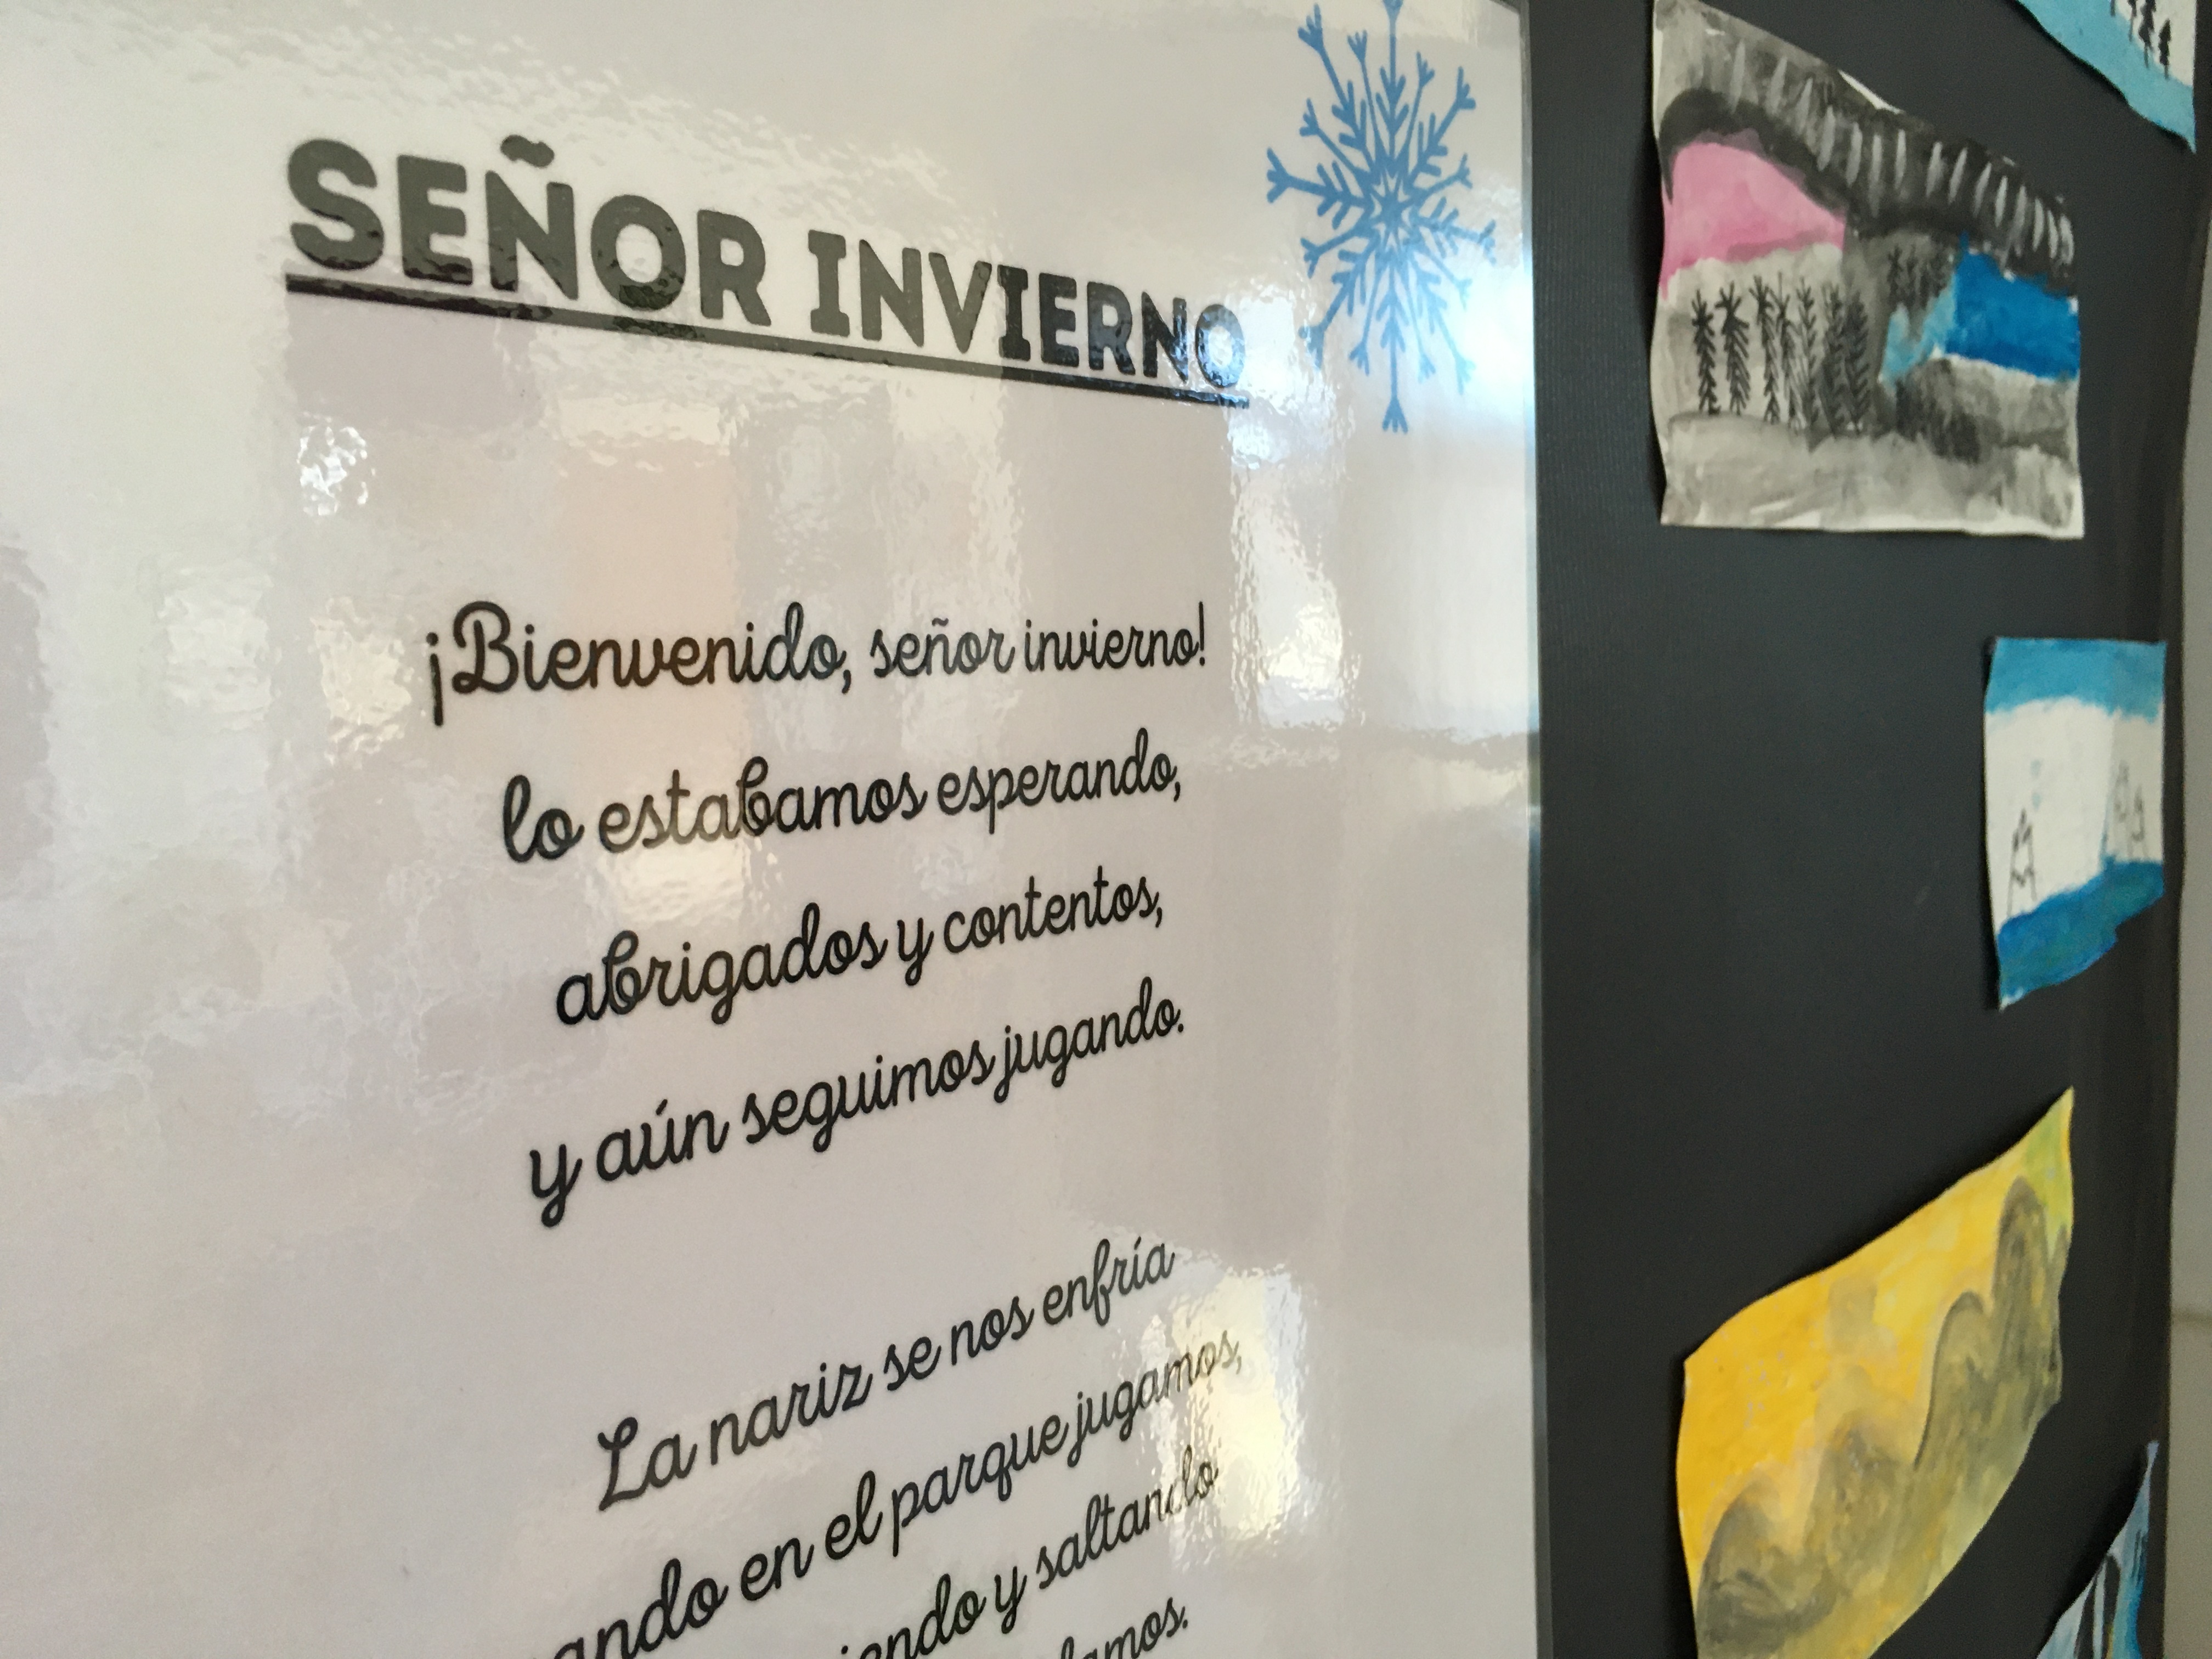 SEÑOR INVIERNO
¡Bienvenido, señor invierno!
lo estabamos esperando,
abrigados y contentos,
y aún seguimos jugando.
La nariz se nos enfría
en el parque jugamos,
y saltando